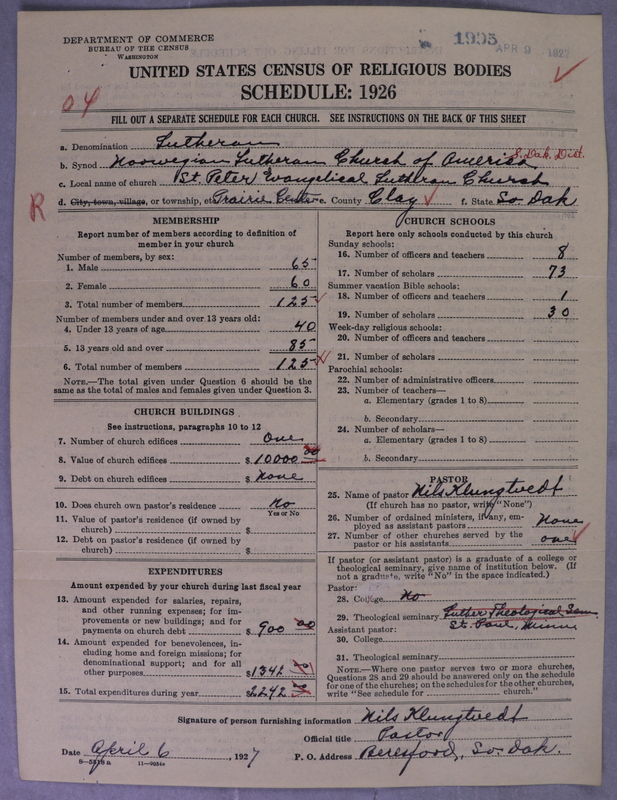 DEPARTMENT OF COMMERCE
BUREAU OF THE CENSUS
WASHINGTON
1995
APR 9 1927
UNITED STATES CENSUS OF RELIGIOUS BODIES
SCHEDULE: 1926
04
FILL OUT A SEPARATE SCHEDULE FOR EACH CHURCH. SEE INSTRUCTIONS ON THE BACK OF THIS SHEET
a. Denomination Lutheran
b. Synod Norwegian Lutheran Church of America S. Dak. Dist.
c. Local name of church St. Peter Evangelical Lutheran Church
R
d. City, town, village, or township, etc. Prairie Center e. County Clay f. State So. Dak
MEMBERSHIP
Report number of members according to definition of
member in your church
Number of members, by sex:
1. Male 65
2. Female 60
3. Total number of members 125
Number of members under and over 13 years old:
4. Under 13 years of age 40
5. 13 years old and over 85
6. Total number of members 125
NOTE.—The total given under Question 6 should be the
same as the total of males and females given under Question 3.
CHURCH BUILDINGS
See instructions, paragraphs 10 to 12
7. Number of church edifices One
8. Value of church edifices $ 10000 00
9. Debt on church edifices $ None
10. Does church own pastor's residence No
Yes or No
11. Value of pastor's residence (if owned by
church) $
12. Debt on pastor's residence (if owned by
church) $
EXPENDITURES
Amount expended by your church during last fiscal year
13. Amount expended for salaries, repairs,
and other running expenses; for im-
provements or new buildings; and for
payments on church debt $ 900 00
14. Amount expended for benevolences, in-
cluding home and foreign missions; for
denominational support; and for all
other purposes $ 1342 00
15. Total expenditures during year $ 2242 00
CHURCH SCHOOLS
Report here only schools conducted by this church
Sunday schools:
16. Number of officers and teachers 8
17. Number of scholars 73
Summer vacation Bible schools:
18. Number of officers and teachers 1
19. Number of scholars 30
Week-day religious schools:
20. Number of officers and teachers
21. Number of scholars
Parochial schools:
22. Number of administrative officers
23. Number of teachers—
a. Elementary (grades 1 to 8)
b. Secondary
24. Number of scholars—
a. Elementary (grades 1 to 8)
b. Secondary
PASTOR
25. Name of pastor Nils Klungtvedt
(If church has no pastor, write "None")
26. Number of ordained ministers, if any, em-
ployed as assistant pastors None
27. Number of other churches served by the
pastor or his assistants one
If pastor (or assistant pastor) is a graduate of a college or
theological seminary, give name of institution below. (If
not a graduate, write "No" in the space indicated.)
Pastor:
28. College No
29. Theological seminary Luther Theological Sem.
St. Paul, Minn
Assistant pastor:
30. College
31. Theological seminary
NOTE.—Where one pastor serves two or more churches,
Questions 28 and 29 should be answered only on the schedule
for one of the churches; on the schedules for the other churches,
write "See schedule for church."
Signature of person furnishing information Nils Klungtvedt
Official title Pastor
Date April 6, 1927
P. O. Address Beresford, So. Dak.
8—5518 a 11—9054a